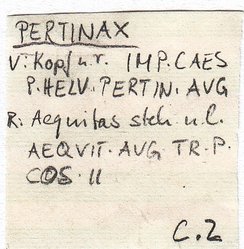 PERTINAX
V: Kopf n. r. IMP. CAES
P. HELV. PERTIN. AVG
R: Aequitas steh. n. l.
AEQVIT. AVG TR. P.
COS. II
C. 2